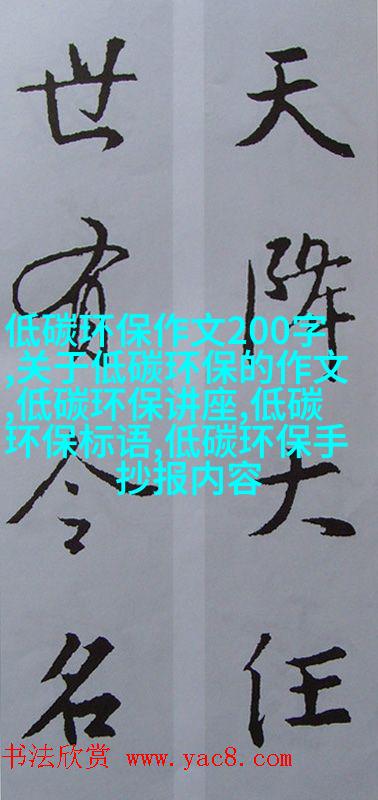 天降大任
世有令名
低碳环保作文200字
,关于低碳环保的作文
,低碳环保讲座,低碳
环保标语,低碳环保手
抄报内容
书法欣赏 www.yac8.com